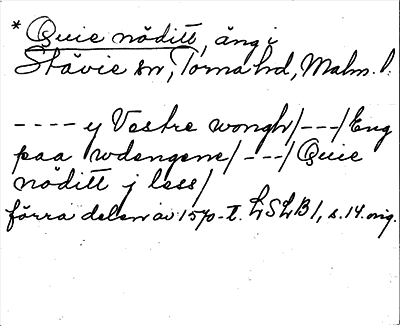 * Quie nöditt, äng i
Stävie sn, Torna hd, Malm. l.
---- y Vestre wongh/---/Eng
paa wdengene/---/Quie
nöditt j less/
förra delen av 1570-t. LSLB 1, s. 14. orig.